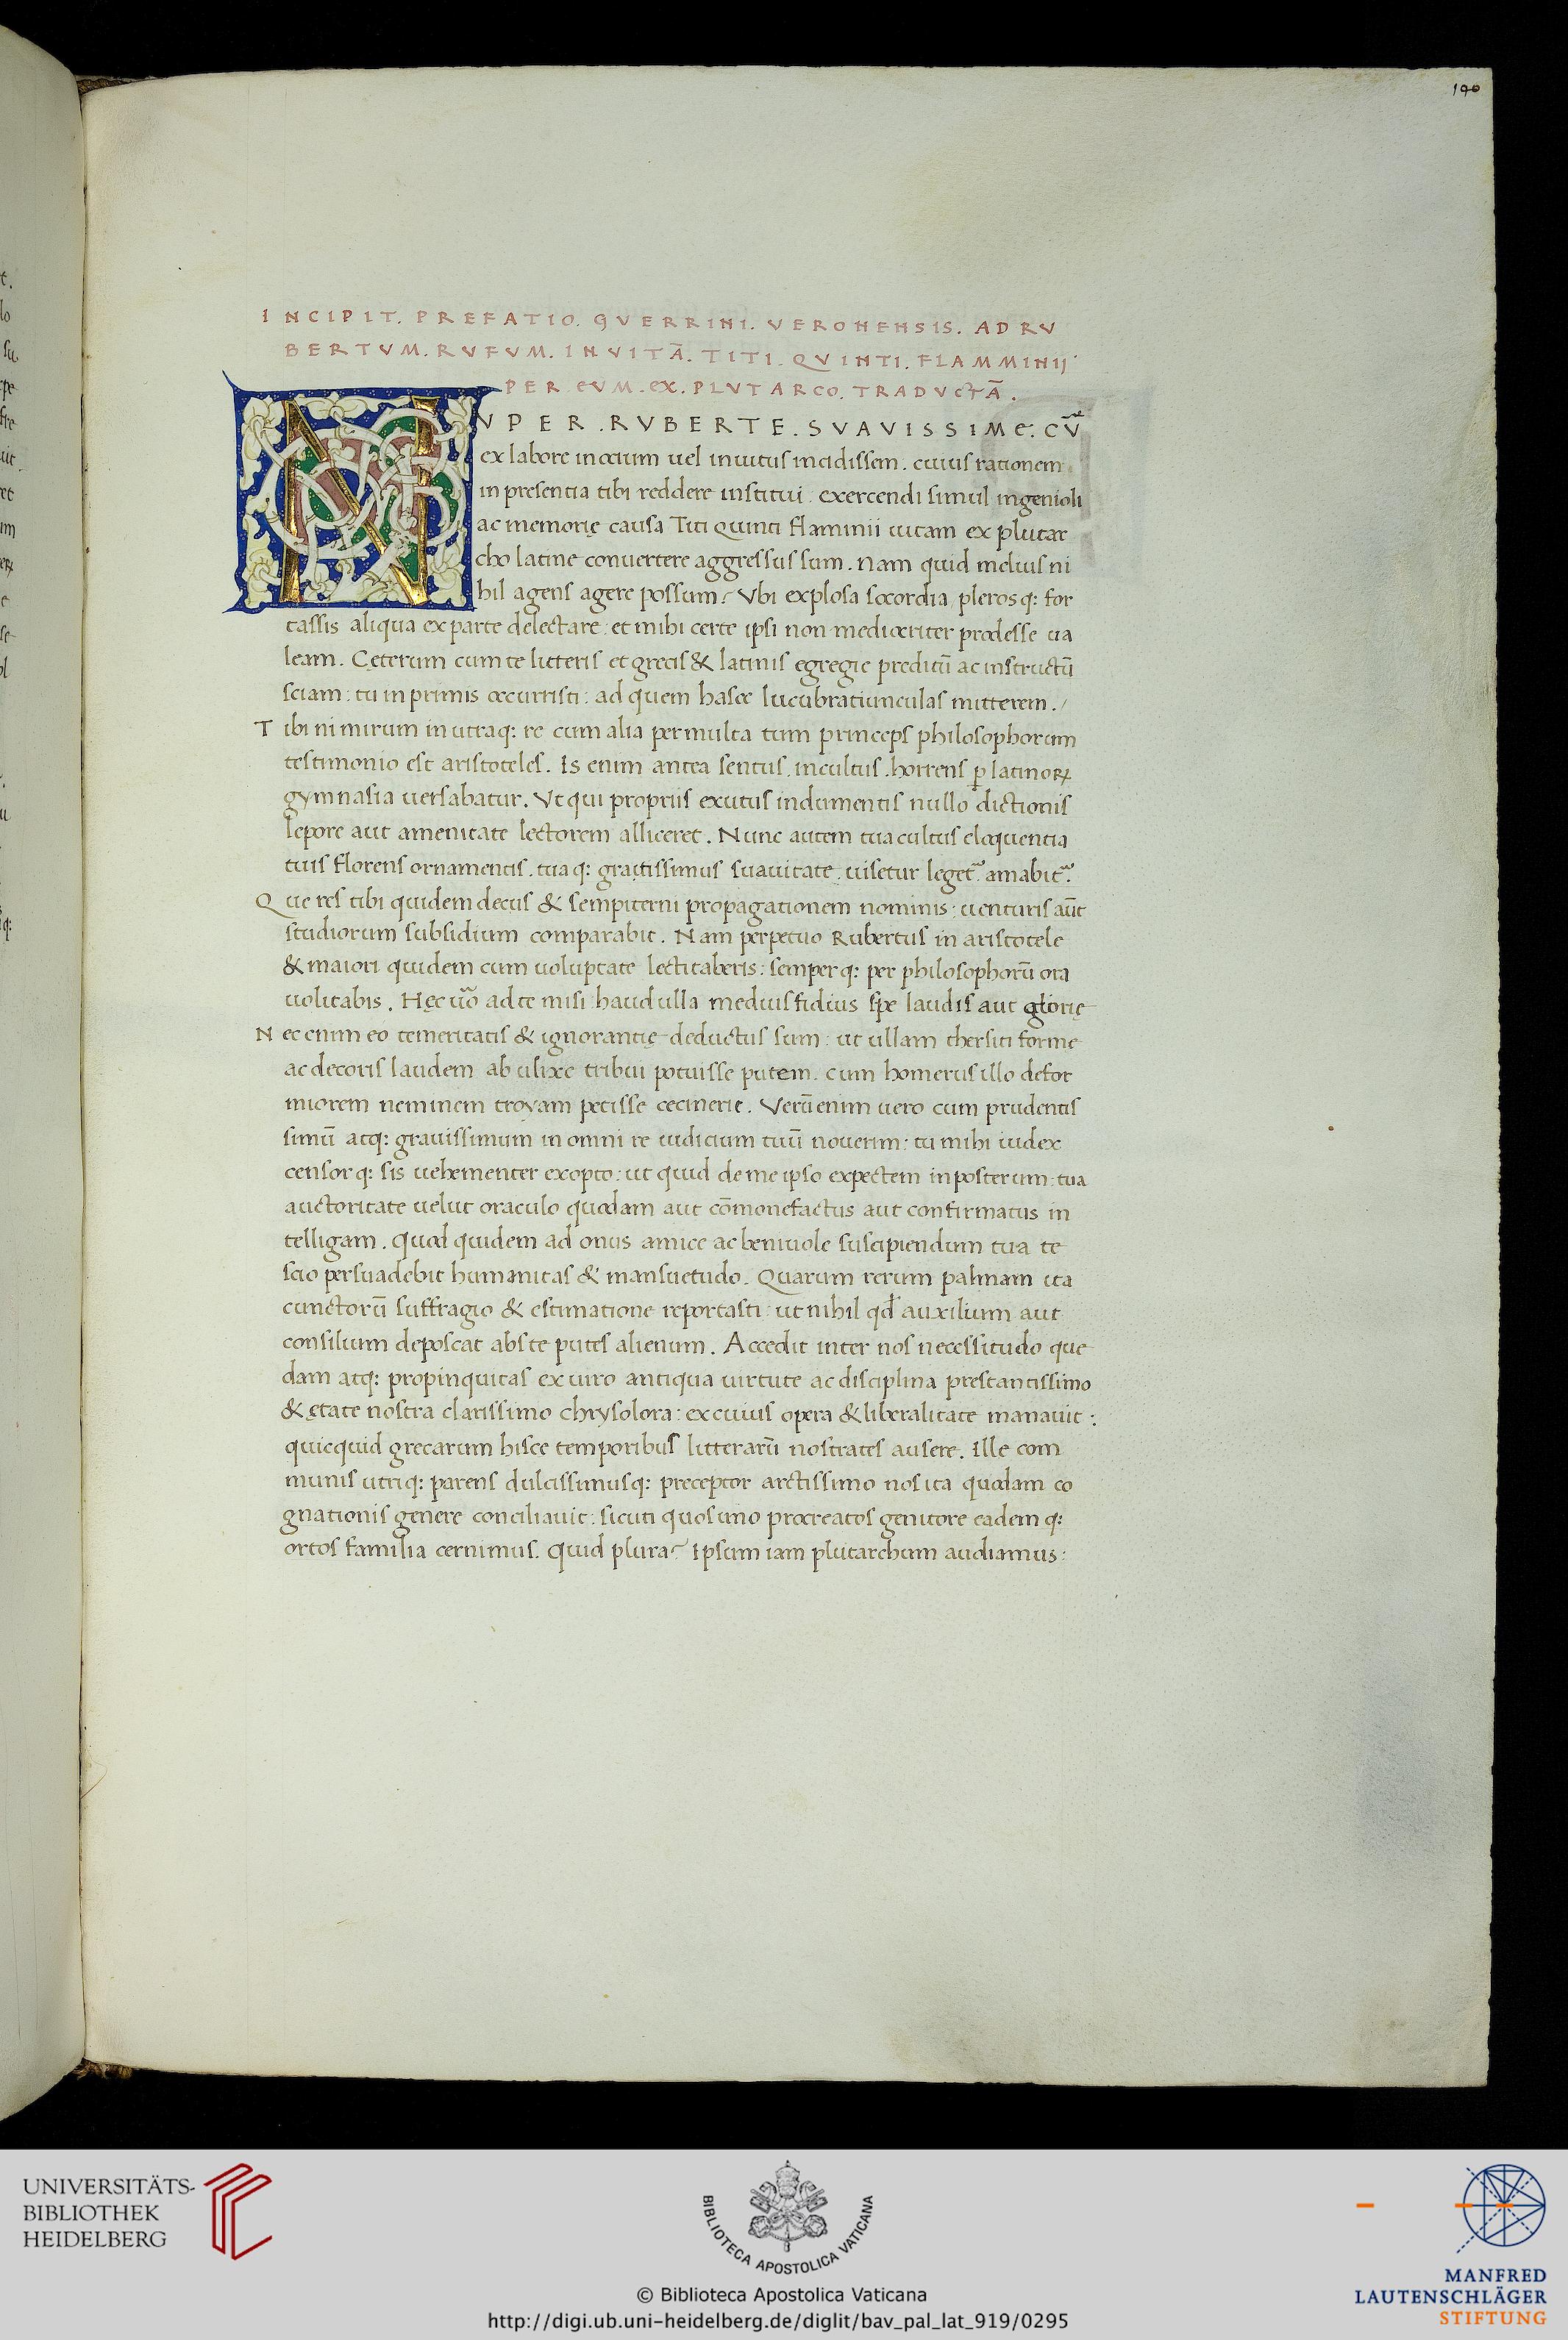 190
INCIPIT. PREFATIO. GVERRINI. VERONENSIS. AD RV
BERTVM. RVFVM. IN VITĀ. TITI. QVINTI. FLAMMINIJ
PER EVM. EX. PLVTARCO. TRADVCTĀ.
NVPER. RVBERTE. SVAVISSIME. CV̄
ex labore in ocium uel inuitus incidissem. cuius rationem
in presentia tibi reddere institui. exercendi simul ingenioli
ac memorię causa Titi quinti flaminii uitam ex plutar
cho latine conuertere aggressus sum. Nam quid melius ni
hil agens agere possum? Vbi explosa socordia plerosq: for
tassis aliqua ex parte delectare: et mihi certe ipsi non mediocriter prodesse ua
leam. Cęterum cum te litteris et grecis & latinis egregie preditū ac instructū
sciam: tu in primis occurristi: ad quem hasce lucubratiunculas mitterem./
Tibi ni mirum in utraq: re cum alia permulta tum princeps philosophorum
testimonio est aristoteles. Is enim antea sentus. incultus. horrens ꝑ latinoꝝ
gymnasia uersabatur. Vt qui propriis exutus indumentis nullo dictionis
lepore aut amenitate lectorem alliceret. Nunc autem tua cultus eloquentia
tuis florens ornamentis. tuaq: gratissimus suauitate. uisetur leget᷑ amabit᷑.
Que res tibi quidem decus & sempiterni propagationem nominis: uenturis aūt
studiorum subsidium comparabit. Nam perpetuo Rubertus in aristotele
& maiori quidem cum uoluptate lectitaberis: semperq: per philosophorū ora
uolitabis. Hęc uo᷑ ad te misi haud ulla mediusfidius spe laudis aut glorię
Nec enim eo temeritatis & ignorantię deductus sum: ut ullam thersiti forme
ac decoris laudem ab ulixe tribui potuisse putem. cum homerus illo defor
miorem neminem troyam petisse cecinerit. Verū enim uero cum prudentis
simū atq: grauissimum in omni re iudicium tuū nouerim: tu mihi iudex
censorq: sis uehementer exopto: ut quid de me ipso expectem in posterum: tua
auctoritate uelut oraculo quodam aut cōmonefactus aut confirmatus in
telligam. Quod quidem ad onus amice ac beniuole suscipiendum tua te
scio persuadebit humanitas & mansuetudo. Quarum rerum palmam ita
cunctorū suffragio & estimatione reportasti: ut nihil qđ auxilium aut
consilium deposcat abs te putes alienum. Accedit inter nos necessitudo que
dam atq: propinquitas ex uiro antiqua uirtute ac disciplina prestantissimo
& ętate nostra clarissimo chrysolora: ex cuius opera & liberalitate manauit:
quicquid grecarum hisce temporibus litterarū nostrates ausere. Ille com
munis utriq: parens dulcissimusq: preceptor arctissimo nos ita quodam co
gnationis genere conciliauit: sicuti quos uno procreatos genitore eadem q:
ortos familia cernimus. Quid plura? Ipsum iam plutarchum audiamus:
UNIVERSITÄTS-
BIBLIOTHEK
HEIDELBERG
BIBLIOTECA APOSTOLICA VATICANA
© Biblioteca Apostolica Vaticana
http://digi.ub.uni-heidelberg.de/diglit/bav_pal_lat_919/0295
MANFRED
LAUTENSCHLÄGER
STIFTUNG